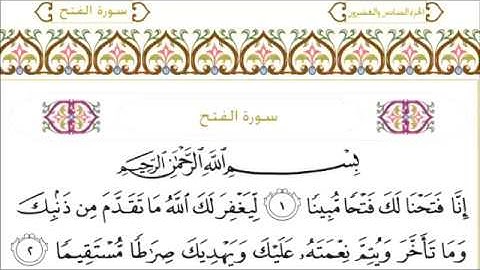 الجزء السادس والعشرون
سورة الفتح
سورة الفتح
بِسْمِ اللَّهِ الرَّحْمَٰنِ الرَّحِيمِ
إِنَّا فَتَحْنَا لَكَ فَتْحًا مُّبِينًا ١ لِّيَغْفِرَ لَكَ اللَّهُ مَا تَقَدَّمَ مِن ذَنۢبِكَ
وَمَا تَأَخَّرَ وَيُتِمَّ نِعْمَتَهُۥ عَلَيْكَ وَيَهْدِيَكَ صِرَٰطًا مُّسْتَقِيمًا ٢